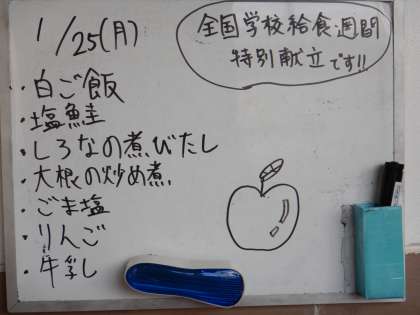 1/25(月)
全国学校給食週間
特別献立です!!
・白ご飯
・塩鮭
・しろなの煮びたし
・大根の炒め煮
・ごま塩
・りんご
・牛乳し